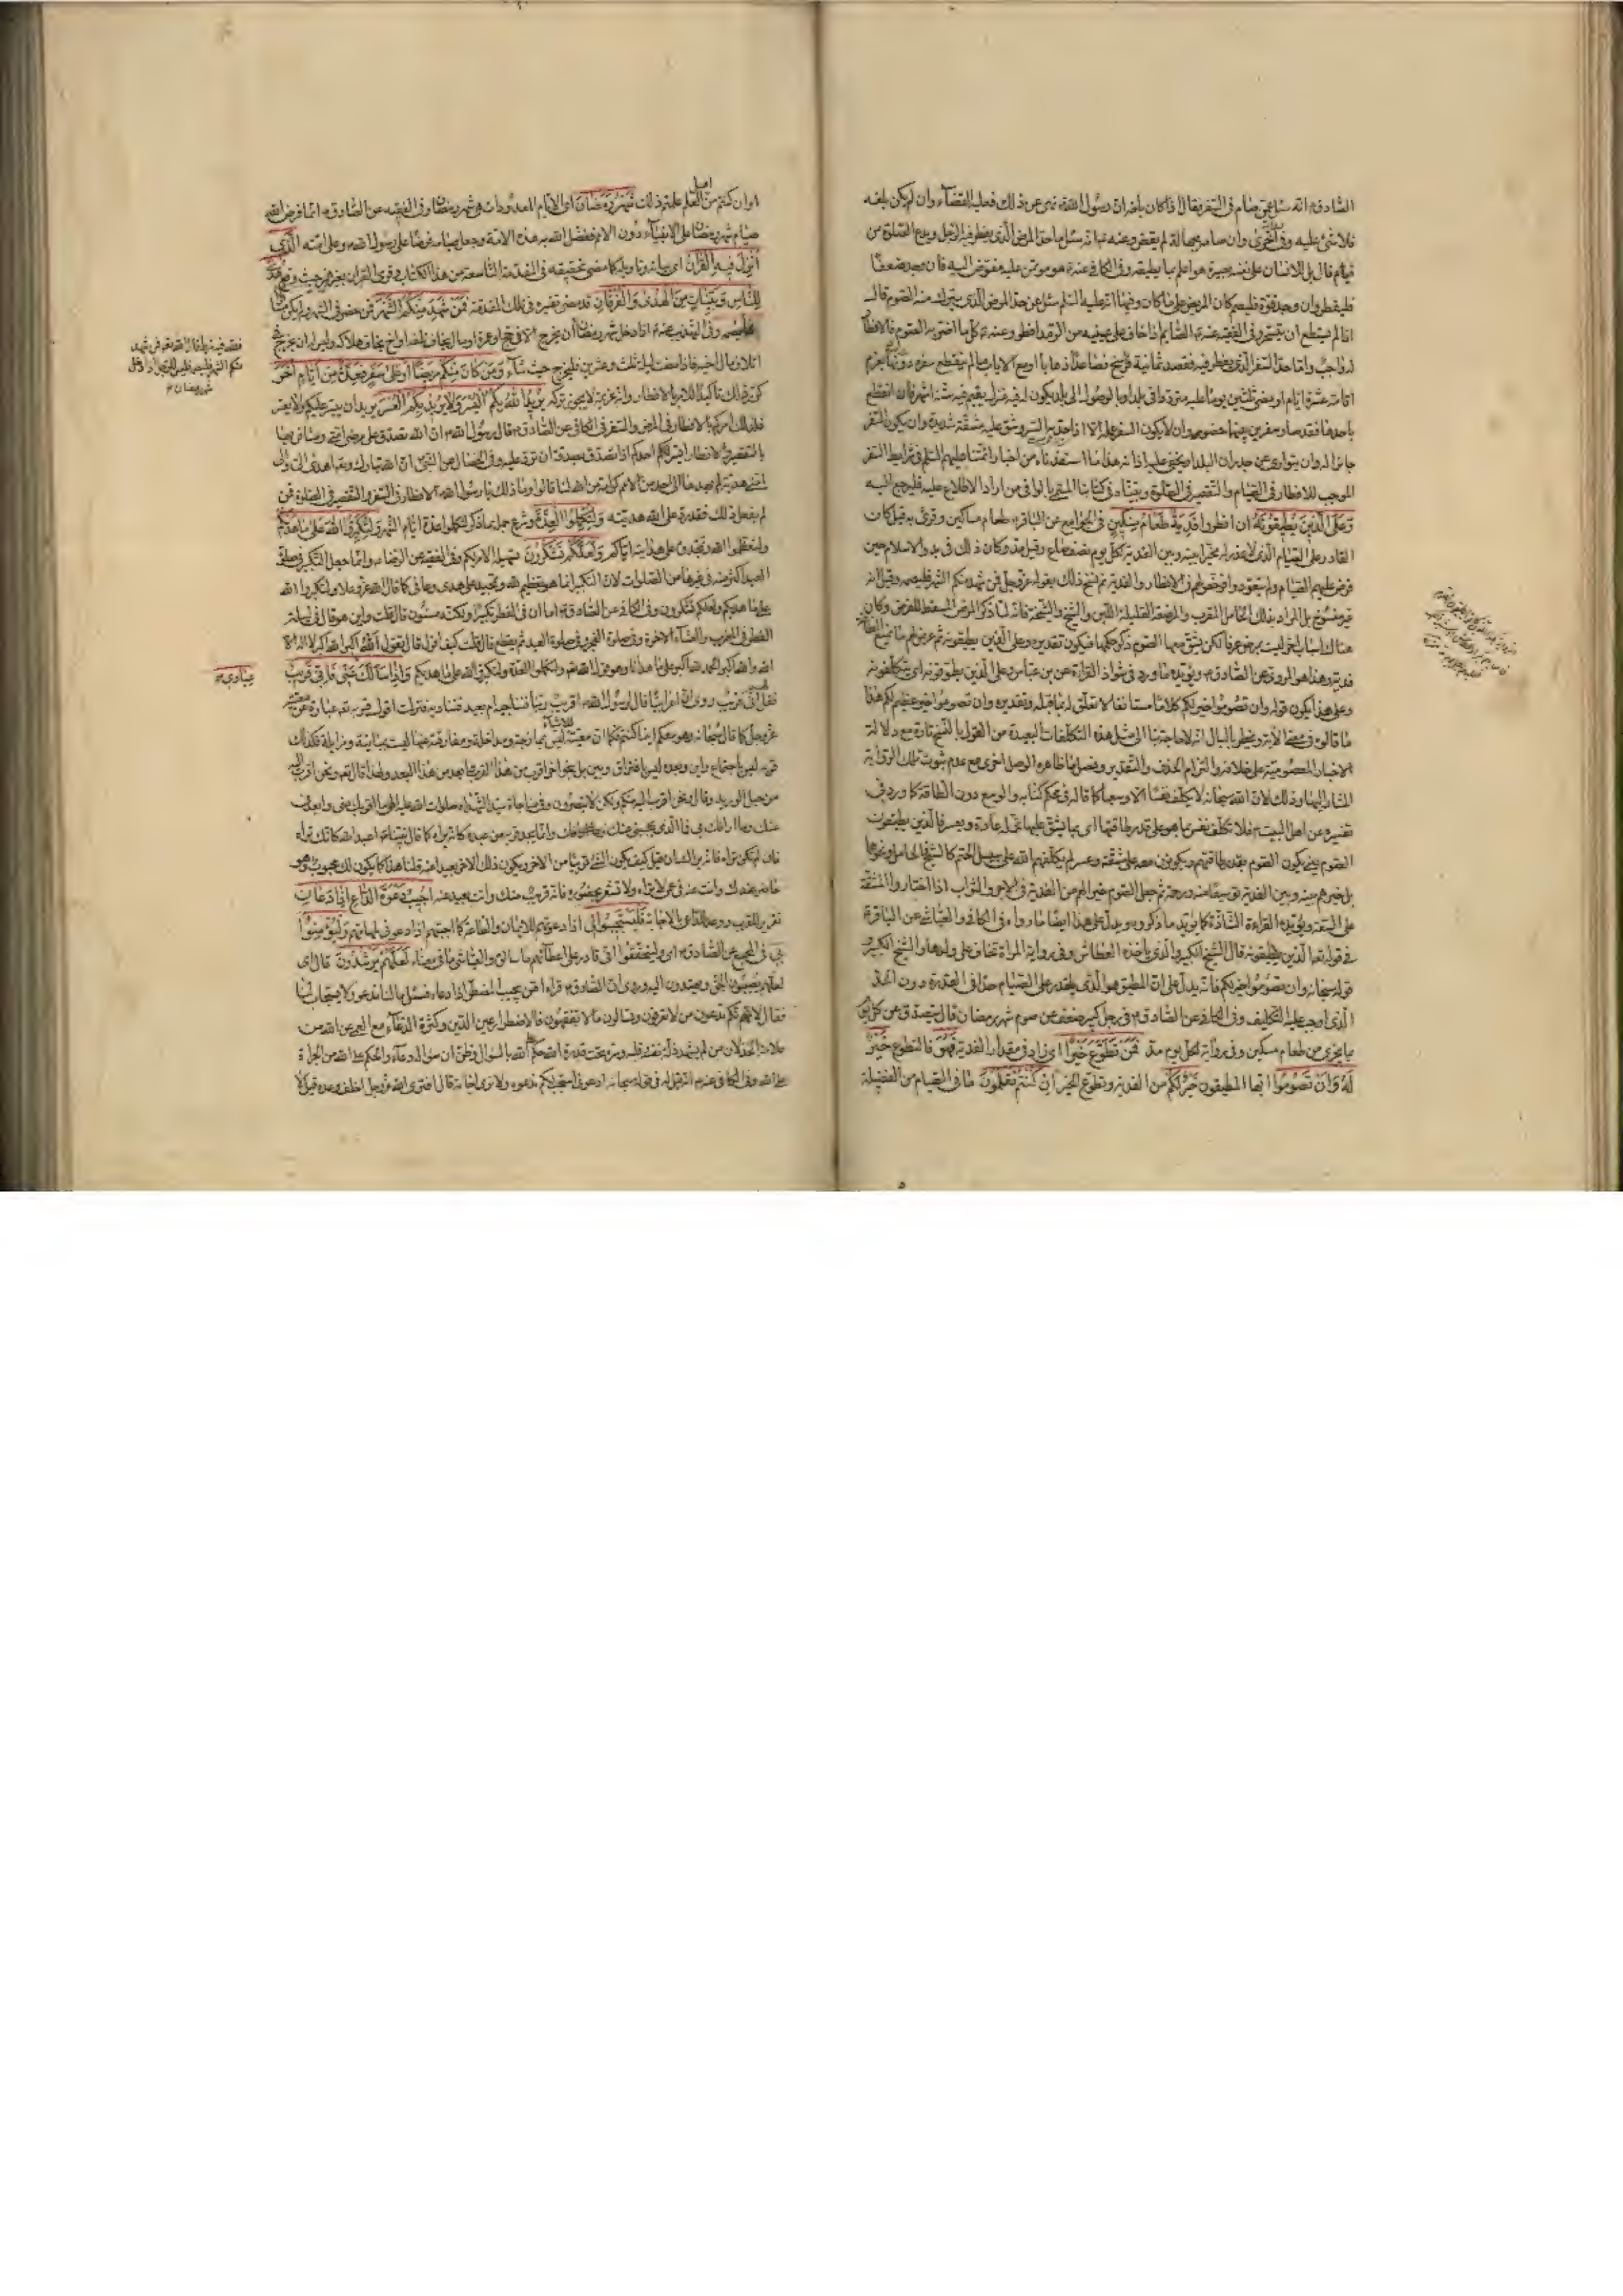 الصادق ع انه سئل عمن صام في السفر فقال اذا كان بلغه ان رسول الله ص نهى عن ذلك فعليه القضاء وان لم يكن بلغه
فلا شئ عليه وفي اخرى وان صامه بجهالة لم يقضه وعنه ع انه سئل ما حد المرض الذي يفطر فيه الرجل ويدع الصلوة من
قيام قال بل الانسان على نفسه بصيرة هو اعلم بما يطيقه وفي الكافي عنه ع هو مؤتمن عليه مفوض اليه فان وجد ضعفا
فليفطر وان وجد قوة فليصم كان المريض على ما كان وفيهما انه عليه السلم سئل عن حد المرض الذي يترك منه الصوم قال
اذا لم يستطع ان يتسحر وفي الفقيه عنه ع الصائم اذا خاف على عينيه من الرمد افطر وعنه ع كل ما اضر به الصوم فالافطار
له واجب واما حد السفر الذي يفطر فيه فقصد ثمانية فراسخ فصاعدا ذهابا او مع الاياب ما لم ينقطع سفره دونها بعزم
اقامة عشرة ايام او مضي ثلثين يوما عليه مترددا في بلد او بالوصول الى بلد يكون له فيه منزل يقيم فيه ستة اشهر فان انقطع
باحدها فقد صار سفرين بينهما حضور وان لا يكون السفر عمله الا اذا جد به السير وشق عليه مشقة شديدة وان يكون السفر
جائزا له وان يتوارى عن جدران البلد او يخفى عليه اذانه هذا ما استفدناه من اخبار ائمتنا عليهم السلم في شرايط السفر
الموجب للافطار في الصيام والتقصير في الصلوة وبيناه في كتابنا المسمى بالوافي من اراد الاطلاع عليه فليرجع اليه
وَعَلَى الَّذِينَ يُطِيقُونَهُ ان افطروا فِدْيَةٌ طَعَامُ مِسْكِينٍ في الجوامع عن الباقر ع طعام مساكين وقرئ به قيل كان
القادر على الصيام الذي لا عذر له مخيرا بينه وبين الفدية لكل يوم نصف صاع وقيل مد وكان ذلك في بدو الاسلام حين
فرض عليهم الصيام ولم يتعودوا فرخص لهم في الافطار والفدية ثم نسخ ذلك بقوله عز وجل فمن شهد منكم الشهر فليصمه وقيل انه
غير منسوخ بل المراد بذلك الحامل المقرب والمرضعة القليلة اللبن والشيخ والشيخة فانه لما ذكر المرض المسقط للفرض وكان
هناك اسباب اخر ليست بمرض عرفا لكن يشق معها الصوم ذكر حكمها فيكون تقديره وعلى الذين يطيقونه ثم عرض لهم ما يمنع الطاقة
فدية وهذا هو المروي عن الصادق ع ويؤيده ما ورد في شواذ القراءة عن بن عباس وعلى الذين يطوقونه اي يتكلفونه
وعلى هذا يكون قوله وان تصوموا خير لكم كلاما مستانفا لا تعلق له بما قبله وتقديره وان تصوموا خير عظيم لكم هذا
ما قالوه في معنى الاية ويخطر بالبال انه لا حاجة بنا الى مثل هذه التكلفات البعيدة من القول بالنسخ تارة مع دلالة
الاخبار المعصومية على خلافه والتزام الحذف والتقدير وفصل ما ظاهره الوصل اخرى مع عدم ثبوت تلك الرواية
المشار اليها وذلك لان الله سبحانه لا يكلف نفسا الا وسعها كما قاله في محكم كتابه والوسع دون الطاقة كما ورد في
تفسيره عن اهل البيت ع فلا تكلف نفس بما هو على قدر طاقتها اي بما يشق عليها تحمله عادة ويعسر فالذين يطيقون
الصوم يعني يكون الصوم بقدر طاقتهم ويكونون معه على مشقة وعسر لم يكلفهم الله على سبيل الحتم كالشيخ والحامل ونحوهما
بل خيرهم بينه وبين الفدية توسيعا منه ورحمة ثم جعل الصوم خيرا لهم من الفدية في الاجر والثواب اذا اختاروا المشقة
على السعة ويؤيده القراءة الشاذة كما يؤيد ما ذكروه ويدل على هذا ايضا ما رواه في الكافي والعياشي عن الباقر ع
في قوله تعالى الذين يطيقونه قال الشيخ الكبير والذي ياخذه العطاش وفي رواية المراة تخاف على ولدها والشيخ الكبير
قوله سبحانه وان تصوموا خير لكم فانه يدل على ان المطيق هو الذي يقدر على الصيام حدا في القدرة دون الحد
الذي اوجب عليه التكليف وفي الكافي عن الصادق ع في رجل كبير ضعف عن صوم شهر رمضان قال يتصدق عن كل يوم
بما يجزي من طعام مسكين وفي رواية لكل يوم مد فَمَنْ تَطَوَّعَ خَيْرًا اي زاد في مقدار الفدية فَهُوَ فالتطوع خَيْرٌ
لَهُ وَأَنْ تَصُومُوا ايها المطيقون خَيْرٌ لَكُمْ من الفدية وتطوع الخير إِنْ كُنْتُمْ تَعْلَمُونَ ما في الصيام من الفضيلة
او ان كنتم من اهل العلم علمتم ذلك شَهْرُ رَمَضَانَ اي الايام المعدودات هي شهر رمضان وفي الفقيه عن الصادق ع انما فرض الله
صيام شهر رمضان على الانبياء دون الامم ففضل الله به هذه الامة وجعل صيامه فرضا على رسول الله ص وعلى امته الَّذِي
أُنْزِلَ فِيهِ الْقُرْآنُ اي بيانه وتاويله كما مضى تحقيقه في المقدمة التاسعة من هذا الكتاب وقرئ القران بغير همز حيث وقع هُدًى
لِلنَّاسِ وَبَيِّنَاتٍ مِنَ الْهُدَى وَالْفُرْقَانِ قد مضى تفسيره في تلك المقدمة فَمَنْ شَهِدَ مِنْكُمُ الشَّهْرَ فمن حضر في الشهر ولم يكن مسافرا
فَلْيَصُمْهُ وفي التهذيب عنه ع اذا دخل شهر رمضان
اتلافه
حيث شاء وَمَنْ كَانَ مِنْكُمْ مَرِيضًا أَوْ عَلَى سَفَرٍ فَعِدَّةٌ مِنْ أَيَّامٍ أُخَرَ
كرر ذلك تاكيدا للامر بالافطار وانه عزيمة لا يجوز تركه يُرِيدُ اللَّهُ بِكُمُ الْيُسْرَ وَلَا يُرِيدُ بِكُمُ الْعُسْرَ يريد ان ييسر عليكم ولا يعسر
فلذلك امركم بالافطار في المرض والسفر في الكافي عن الصادق ع قال رسول الله ص ان الله تصدق على مرضى امتي ومسافريها
بالتقصير والافطار ايسر احدكم اذا تصدق بصدقة ان ترد عليه وفي الخصال عن النبي ص ان الله تبارك وتعالى اهدى الي والى
امتي هدية لم يهدها الى احد من الامم كرامة من الله لنا قالوا وما ذلك يا رسول الله ص قال الافطار في السفر والتقصير في الصلوة فمن
لم يفعل ذلك فقد رد على الله هديته وَلِتُكْمِلُوا الْعِدَّةَ وشرع جملة ما ذكر لتكملوا عدة ايام الشهر وَلِتُكَبِّرُوا اللَّهَ عَلَى مَا هَدَاكُمْ
ولتعظموا الله وتمجدوه على هدايته اياكم وَلَعَلَّكُمْ تَشْكُرُونَ تسهيله الامر لكم وفي الفقيه عن الرضا ع وانما جعل التكبير في صلوة
العيد اكثر منه في غيرها من الصلوات لان التكبير انما هو تعظيم لله وتمجيد على ما هدى وعافى كما قال الله عز وعلا ولتكبروا الله
على ما هديكم ولعلكم تشكرون وفي الكافي عن الصادق ع اما ان في الفطر تكبيرا ولكنه مسنون قال قلت واين هو قال في ليلة
الفطر في المغرب والعشاء الاخرة وفي صلوة الفجر وفي صلوة العيد ثم يقطع قال قلت كيف اقول قال تقول الله اكبر الله اكبر لا اله الا
الله والله اكبر الله اكبر ولله الحمد الله اكبر على ما هدانا وهو قول الله تعالى ولتكملوا العدة ولتكبروا الله على ما هديكم وَإِذَا سَأَلَكَ عَنِّي فَإِنِّي قَرِيبٌ
فقل لهم اني قريب روي ان اعرابيا قال لرسول الله ص اقريب ربنا فنناجيه ام بعيد فنناديه فنزلت اقول قربه تعالى عبارة عن معيته
عز وجل كما قال سبحانه وهو معكم اينما كنتم فكما ان معيته للاشياء ليس بممازجة ومداخلة ومفارقته عنها ليست بمباينة ومزايلة فكذلك
قربه ليس باجتماع واين وبعده ليس بافتراق وبين بل بنحو اخر اقرب من هذا القرب وابعد من هذا البعد ولهذا قال تعالى ونحن اقرب اليه
من حبل الوريد وقال ونحن اقرب اليه منكم ولكن لا تبصرون وفي مناجاة سيد الشهداء صلوات الله عليه الهي ما اقربك مني وابعدني
عنك وما ارافك بي فما الذي يحجبني عنك وانما يجد قربه من عبده كانه يراه كما قال نبينا ص اعبد الله كانك تراه
فان لم تكن تراه فانه يراك ان قيل كيف يكون الشئ قريبا من الاخر ويكون ذلك الاخر بعيدا عنه قلنا هذا كما يكون لك محبوب وهو
حاضر عندك وانت عنه في عمى لا تراه ولا تشعر بحضوره فانه قريب منك وانت بعيد عنه أُجِيبُ دَعْوَةَ الدَّاعِ إِذَا دَعَانِ
تقرير للقرب ووعد للداعي بالاجابة فَلْيَسْتَجِيبُوا لِي اذا دعوتهم للايمان والطاعة كما اجيبهم اذا دعوني لمهماتهم وَلْيُؤْمِنُوا
بِي في المجمع عن الصادق ع اي وليتحققوا اني قادر على اعطائهم ما سالوه والعياشي ما في معناه لَعَلَّهُمْ يَرْشُدُونَ قال اي
لعلهم يصيبون الحق ويهتدون اليه وروي ان الصادق ع قراء امن يجيب المضطر اذا دعاه فسئل ما لنا ندعو ولا يستجاب لنا
فقال لانكم تدعون من لا تعرفون وتسالون ما لا تفهمون فالاضطرار عين الدين وكثرة الدعاء مع العمى عن الله من
علامة الخذلان من لم يشهد ذلة نفسه وقلبه وسره تحت قدرة الله حكم على الله بالسؤال وظن ان سؤاله دعاء والحكم على الله من الجراة
على الله وفي الكافي عنه ع انه قيل له في قوله سبحانه ادعوني استجب لكم ندعوه ولا نرى اجابة قال افترى الله عز وجل اخلف وعده قيل لا
عِبَادِي صح